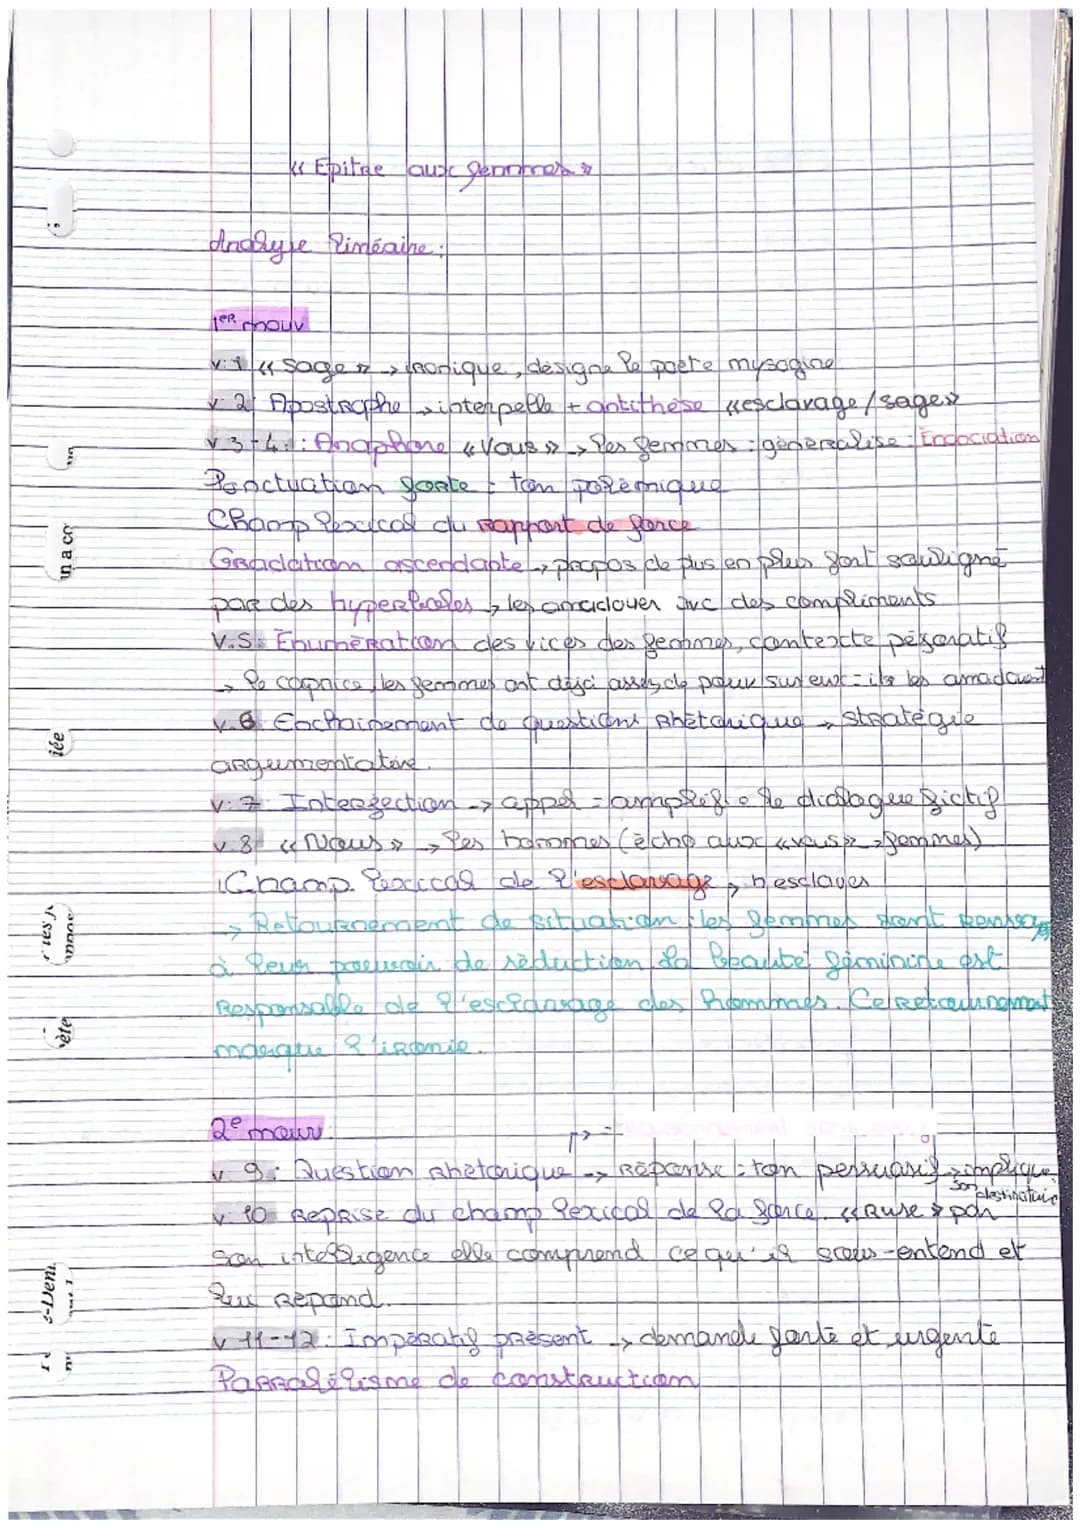 « Epitre aux femmes »
Analyse linéaire :
1er mouv
v.1 « Sage » → ironique, désigne le poète mysogine
v 2 Apostrophe → interpelle + antithèse « esclavage / sage »
v 3-4 : Anaphore « Vous » → les femmes : généralise : Enonciation
Ponctuation forte = ton polémique
Champ lexical du rapport de force
Gradation ascendante → propos de plus en plus fort souligné
par des hyperboles → les amadouer avc des compliments
V.5. Enumération des vices des femmes, contexte péjoratif
→ le caprice, les femmes ont déjà assez de pour sur eux = ils les amadouent
v.6 Enchainement de questions Rhétorique → stratégie
argumentative.
v. 7. Interjection → appel = amplifie le dialogue fictif
v.8 « Nous » → les hommes (écho aux « vous » → femmes)
Champ lexical de l'esclavage → h esclaves
→ Retournement de situation : les femmes sont
à leur pouvoir de séduction, la beauté féminine est
Responsable de l'esclavage des hommes. Ce retournement
marque l'ironie.
2e mouv.
v 9 : Question Rhétorique → Réponse : ton persuasif → implique son destinataire
v. 10 Reprise du champ lexical de la force. « Ruse » par
son intelligence elle comprend ce qu'il sous-entend et
lui répond.
v 11-12 : Impératif présent → demande forte et urgente
Parralélisme de construction
in a co
iée
ète
s-Deni